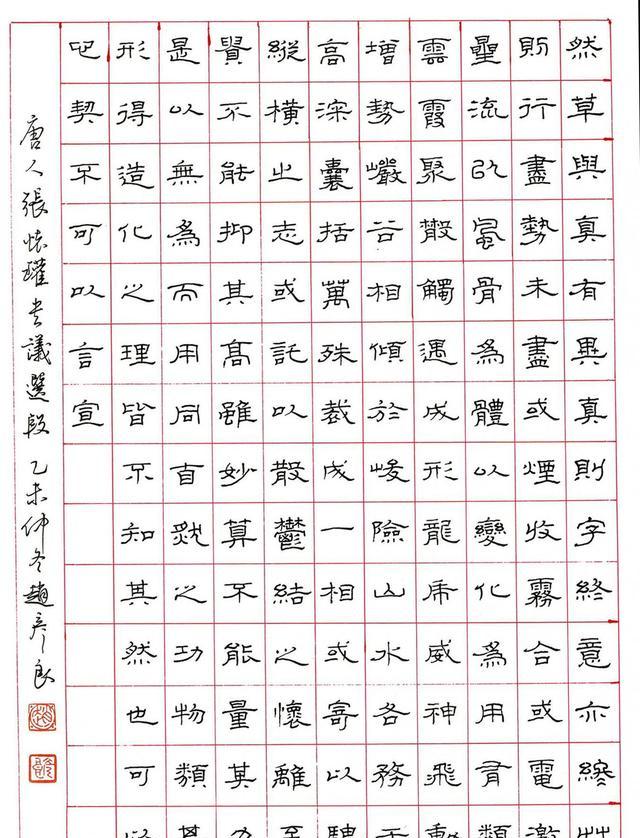 然草與真有異真則字終意亦終草
則行盡勢未盡或煙收霧合或電激
星流以風骨為體以變化為用有類
雲霞聚散觸遇成形龍虎威神飛動
增勢巖谷相傾於峻險山水各務於
高深囊括萬殊裁成一相或寄以騁
縱橫之志或託以散鬱結之懷雖至
貴不能抑其高雖妙算不能量其力
是以無為而用同自然之功物類其
形得造化之理皆不知其然也可以
心契不可以言宣
唐人張懷瓘書議選段 乙未仲冬趙彥良